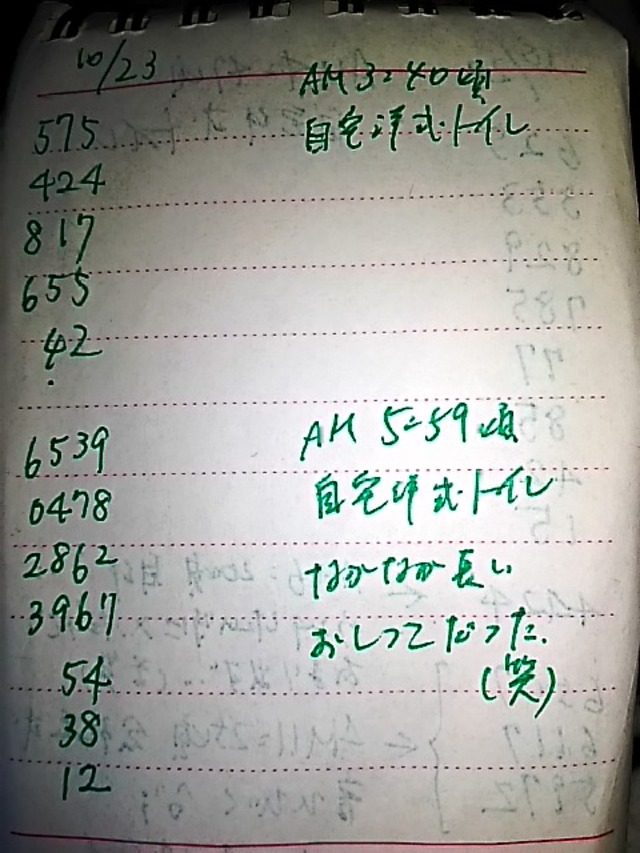 10/23
AM 3=40頃
575 自宅洋式トイレ
424
817
655
42
6539 AM 5=59頃
0478 自宅洋式トイレ
2862 なかなか長い
3967 おしっこだった.
54 (笑)
38
12